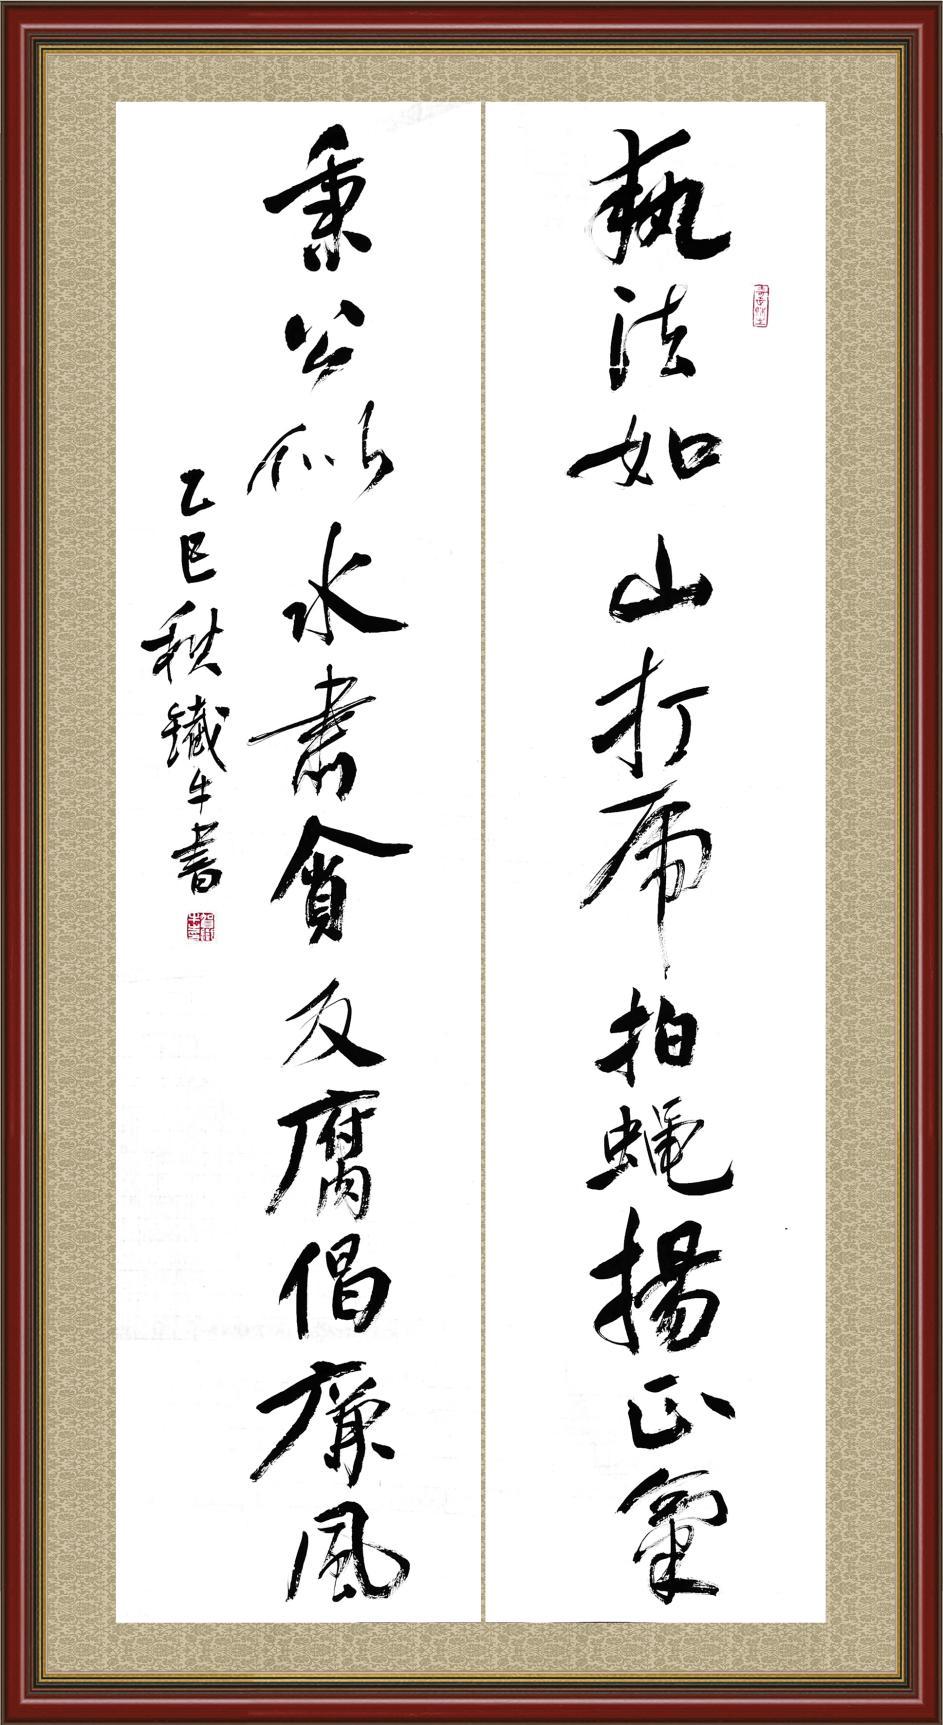 執法如山打虎拍蝇揚正氣
秉公似水肃貪反腐倡廉風
乙巳秋鐵牛書